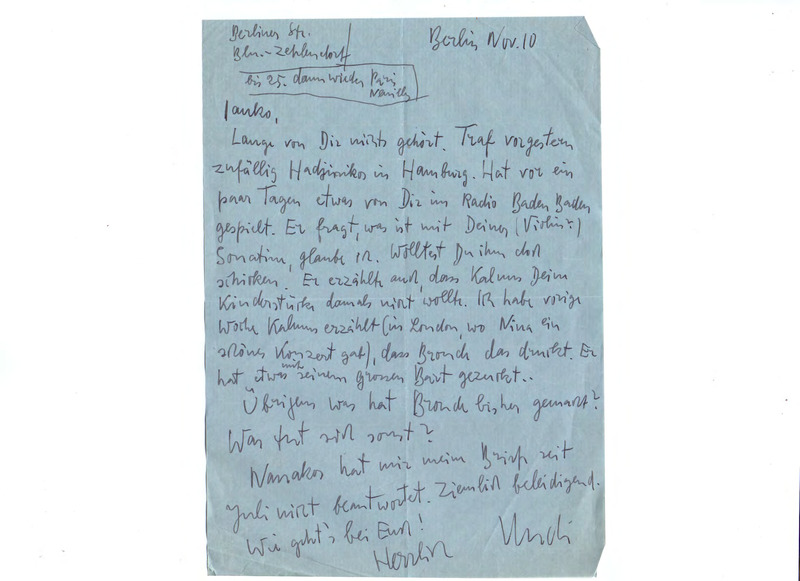 Berliner Str.
Bln.-Zehlendorf
Berlin Nov. 10
bis 25. dann wieder Paris
Neuilly
Janko,
Lange von Dir nichts gehört. Traf vorgestern
zufällig Hadjinikos in Hamburg. Hat vor ein
paar Tagen etwas von Dir im Radio Baden Baden
gespielt. Er fragt, was ist mit Deiner (Violin?)
Sonatine, glaube ich. Wolltest Du ihm doch
schicken. Er erzählte auch, dass Kalmus Deine
Kinderstücke damals nicht wollte. Ich habe vorige
Woche Kalmus erzählt (in London, wo Nina ein
schönes Konzert gab), dass Broude das druckt. Er
hat etwas mit seinem grossen Bart gezuckt..
Übrigens was hat Broude bisher gemacht?
Was tut sich sonst?
hat mir meinen Brief seit
Juli nicht beantwortet. Ziemlich beleidigend.
Wie geht's bei Euch!
Herzlich